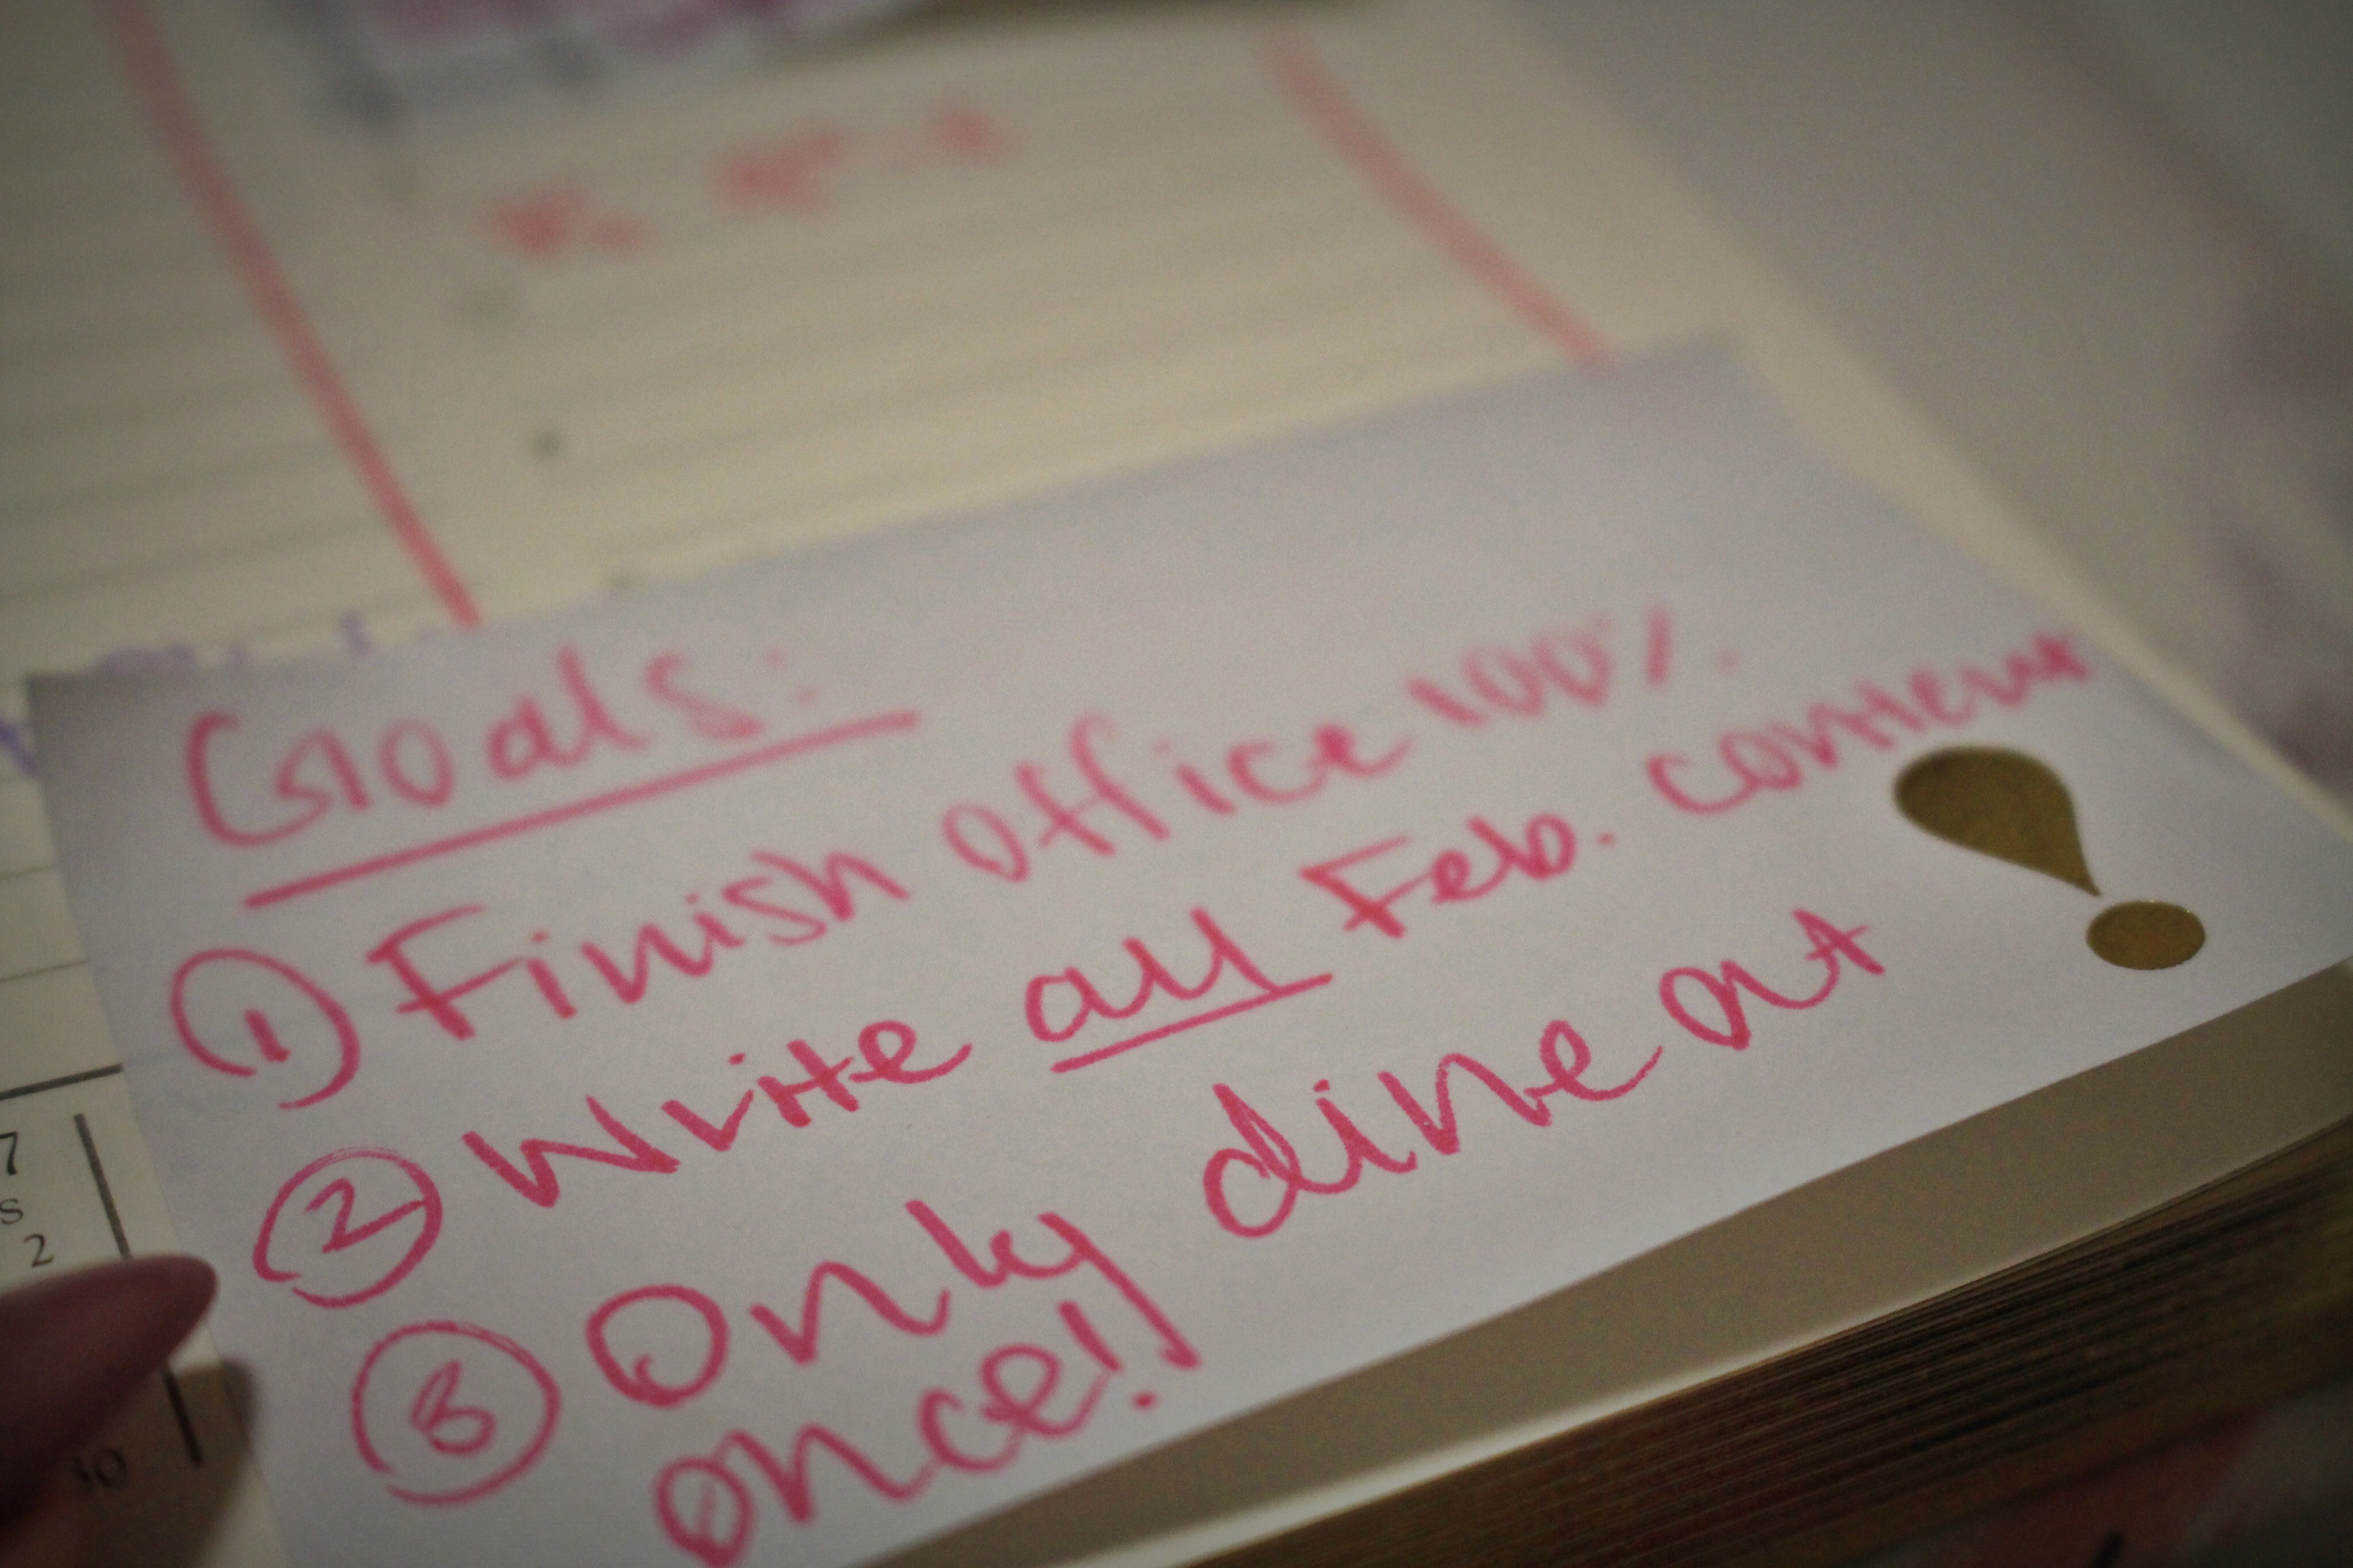 Goals:
① Finish office 100%.
② Write all Feb. content
③ Only dine out
once!
7
S
2
30